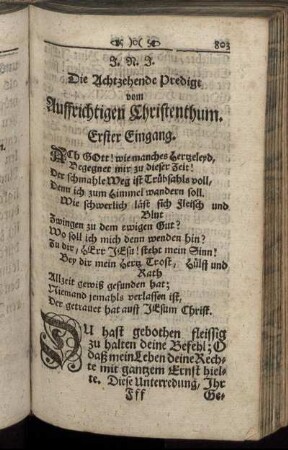 803
J. N. J.
Die Achtzehende Predigt
vom
Auffrichtigen Christenthum.
Erster Eingang.
ACh GOtt! wie manches Hertzeleyd,
Begegnet mir zu dieser Zeit!
Der schmahle Weg ist Trübsahls voll,
Denn ich zum Himmel wandern soll.
Wie schwerlich läst sich Fleisch und
Blut
Zwingen zu dem ewigen Gut?
Wo soll ich mich denn wenden hin?
Zu dir, HErr JEsu! steht mein Sinn!
Bey dir mein Hertz Trost, Hülff und
Rath
Allzeit gewiß gefunden hat;
Niemand jemahls verlassen ist,
Der getrauet hat auff JEsum Christ.
DU hast gebothen fleissig
zu halten deine Befehl; O
daß mein Leben deine Rech-
te mit gantzem Ernst hiel-
te. Diese Unterredung, Ihr
Fff Ge-